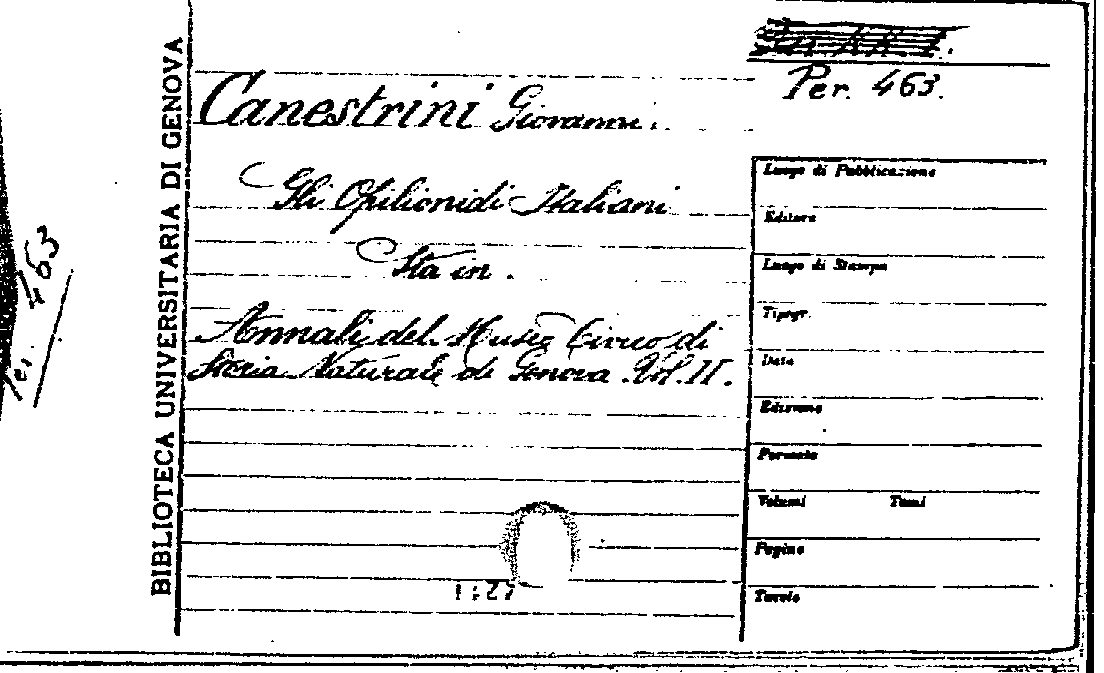 BIBLIOTECA UNIVERSITARIA DI GENOVA
Per. 463.
Canestrini Giovanni.
Gli Opilionidi Italiani
Sta in.
Annali del Museo Civico di
Storia Naturale di Genova. Vol. II.
Luogo di Pubblicazione
Editore
Luogo di Stampa
Tipogr.
Data
Edizione
Formato
Volumi Tomi
Pagine
Tavole
Per. 463